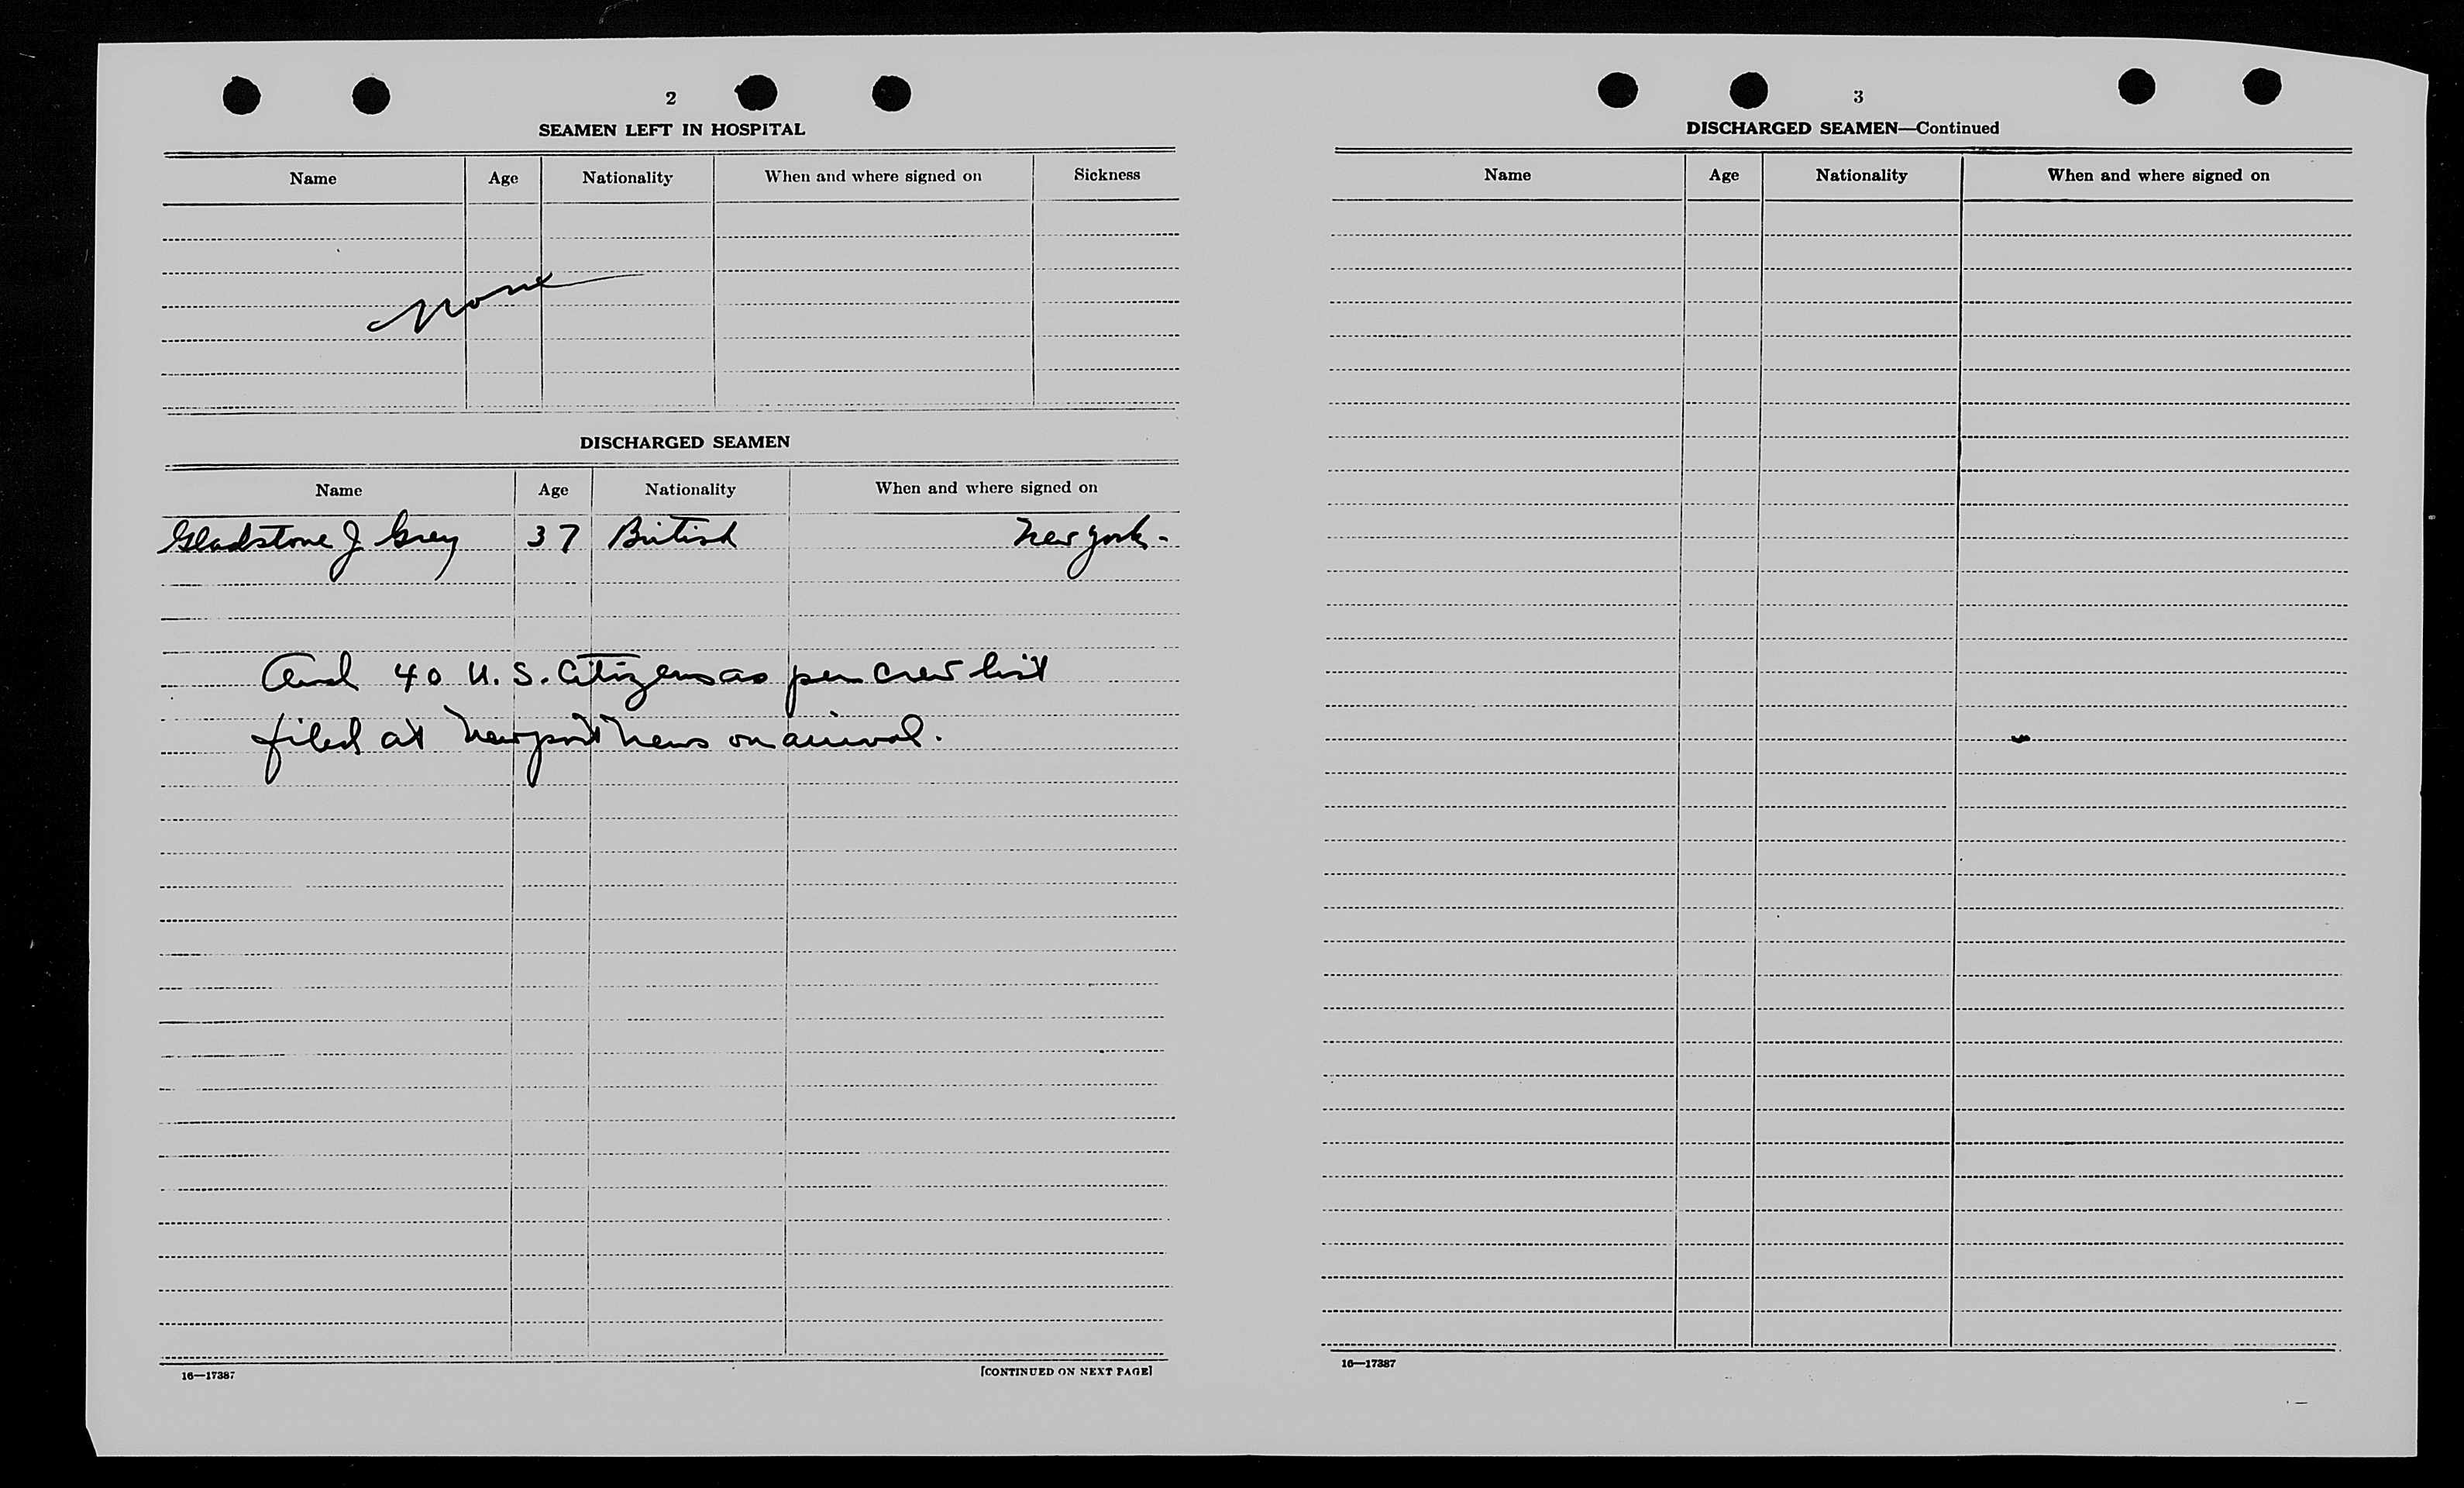 2
SEAMEN LEFT IN HOSPITAL
Name Age Nationality When and where signed on Sickness
None
DISCHARGED SEAMEN
Name Age Nationality When and where signed on
Gladstone J Grey 37 British New York -
And 40 U. S. Citizens as per Crew list
filed at Newport News on arrival.
16—17387 [CONTINUED ON NEXT PAGE]
3
DISCHARGED SEAMEN—Continued
Name Age Nationality When and where signed on
16—17387